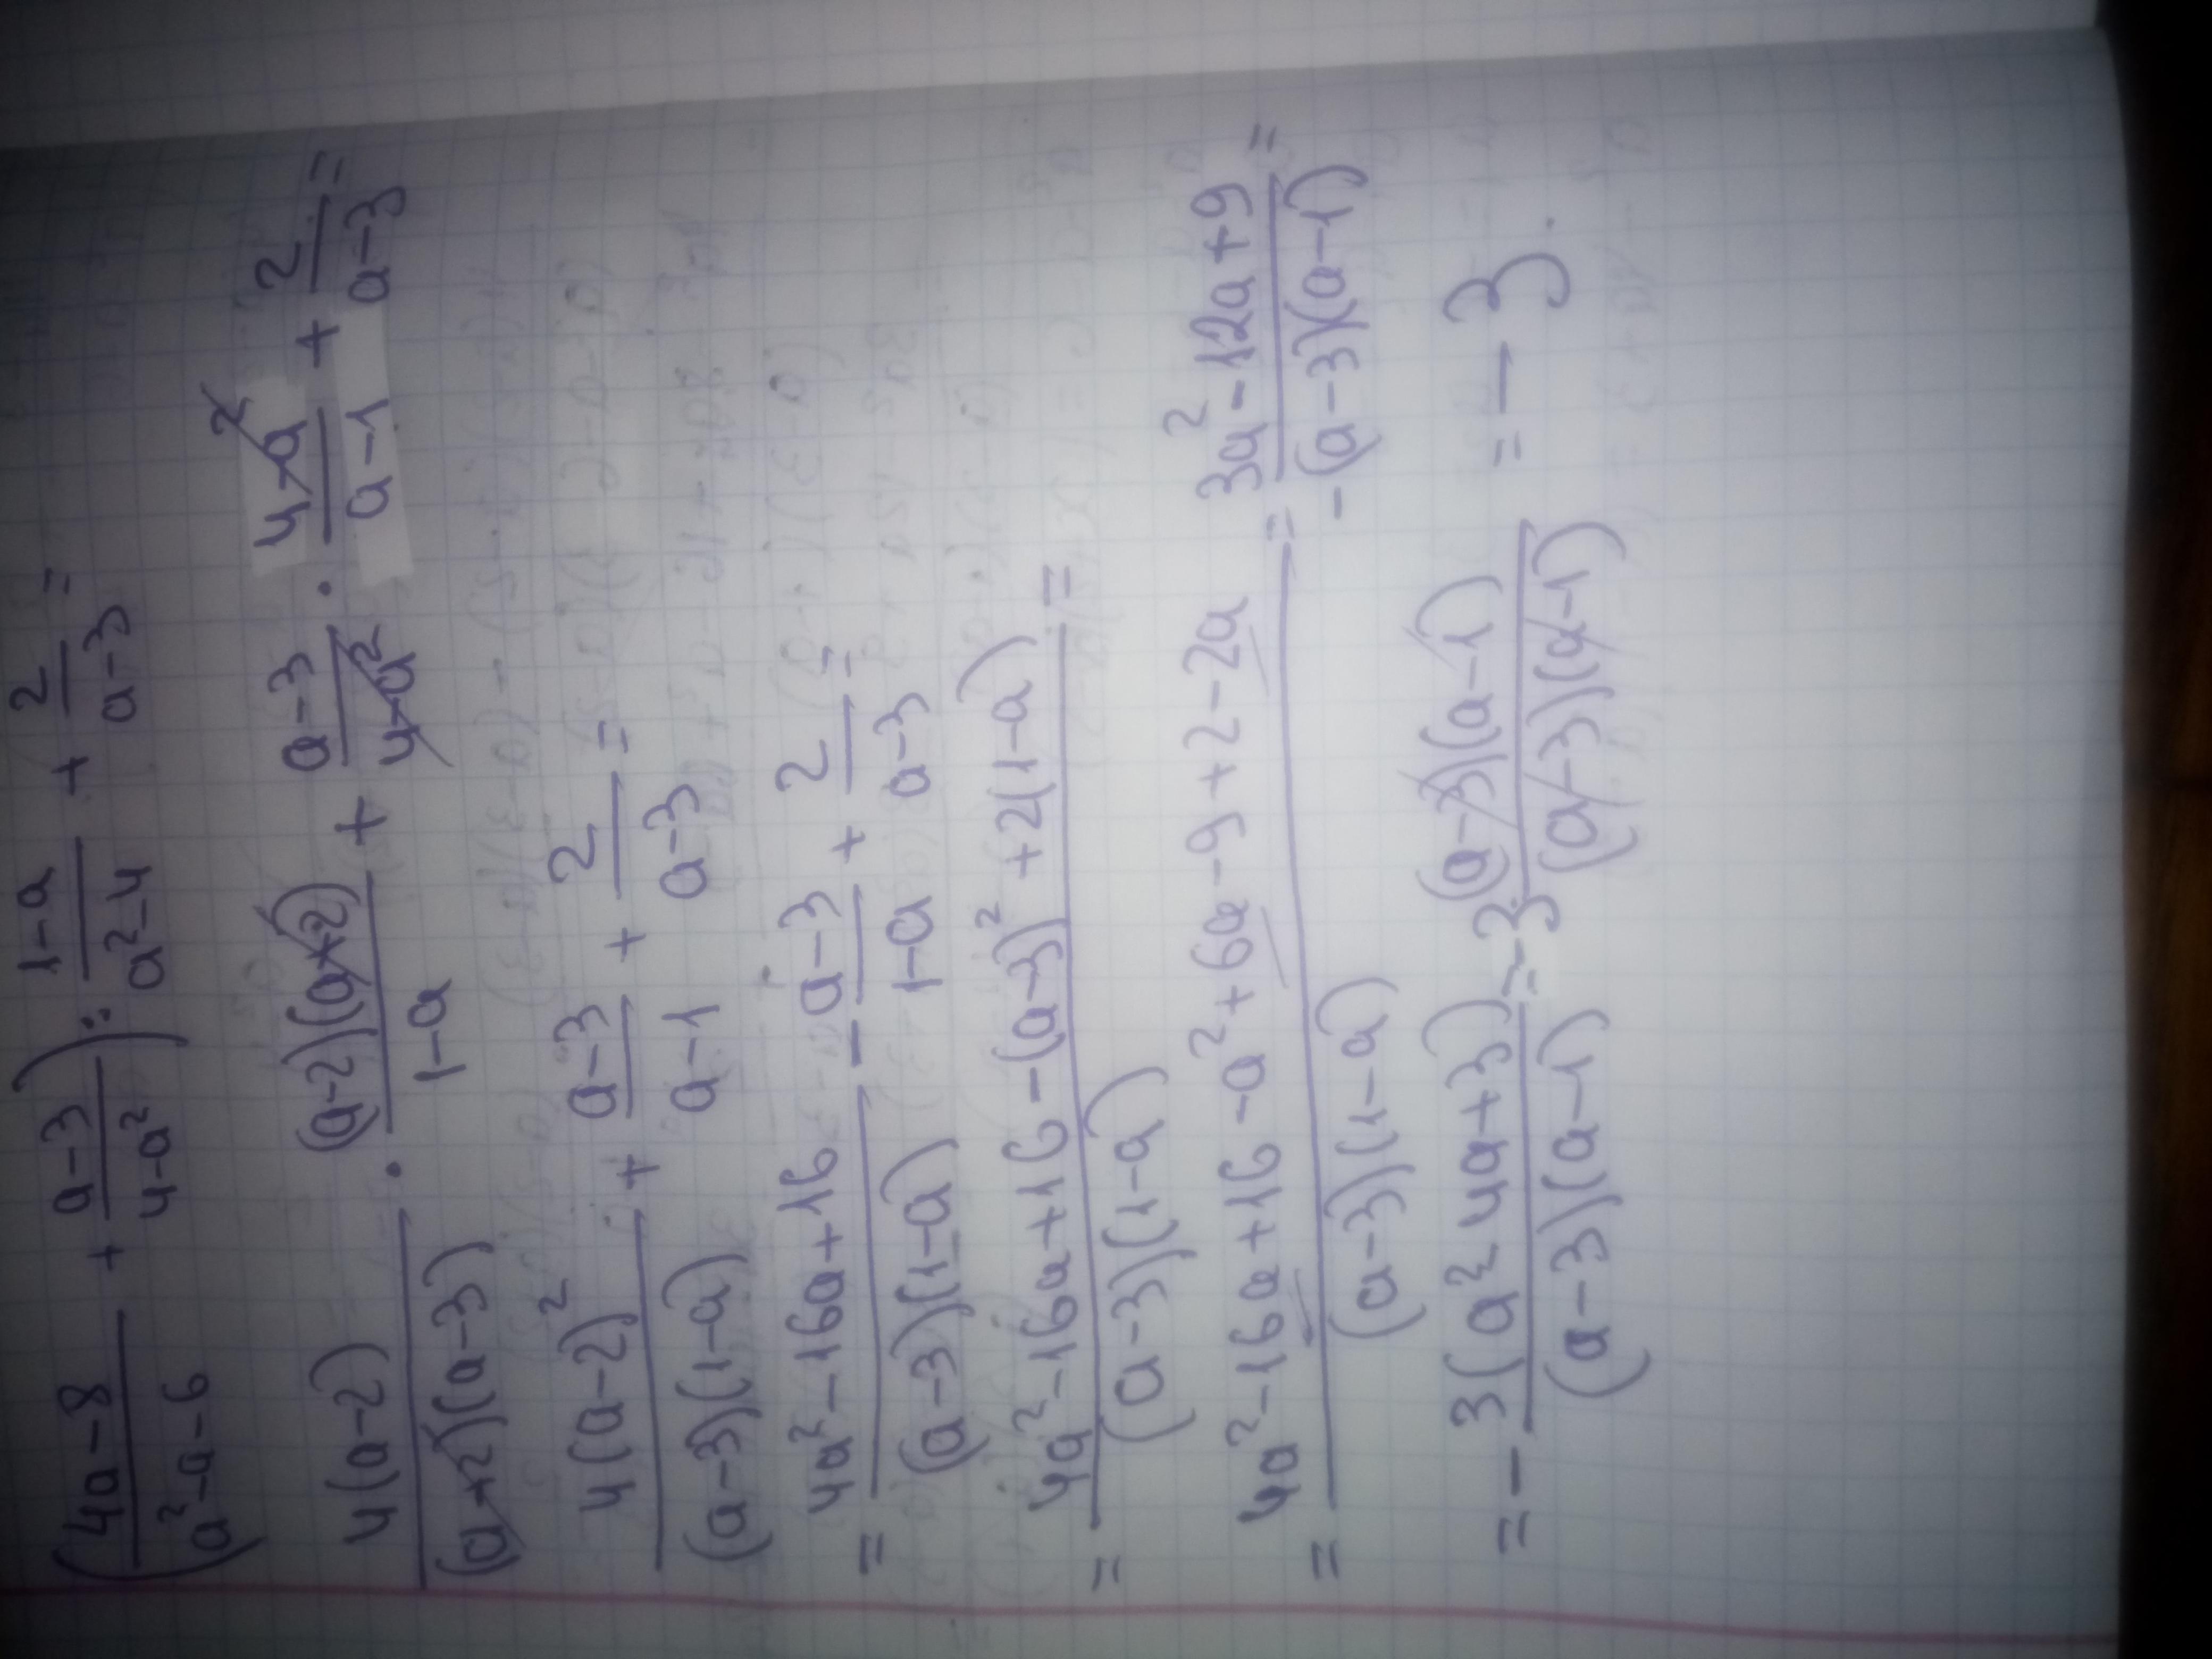 (4a-8)/(a²-a-6) + (a-3)/(4-a²)) : (1-a)/(a²-4) + 2/(a-3) =
4(a-2)/((a+2)(a-3)) · (a-2)(a+2)/(1-a) + (a-3)/(4-a²) · (4-a²)/(a-1) + 2/(a-3) =
4(a-2)²/((a-3)(1-a)) + (a-3)/(a-1) + 2/(a-3) =
= (4a²-16a+16)/((a-3)(1-a)) - (a-3)/(1-a) + 2/(a-3) =
= (4a²-16a+16-(a-3)²+2(1-a))/((a-3)(1-a)) =
= (4a²-16a+16-a²+6a-9+2-2a)/((a-3)(1-a)) = (3a²-12a+9)/(-(a-3)(a-1)) =
= - 3(a² 4a+3)/((a-3)(a-1)) = -3 (a-3)(a-1)/((a-3)(a-1)) = -3.